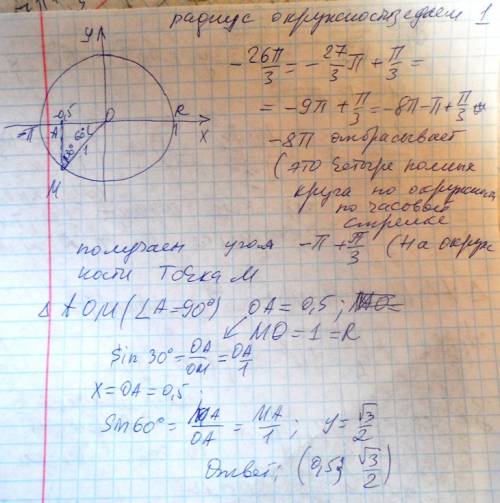 радиус окружности едаем 1
y
-26π/3 = -27/3 π + π/3 =
= -9π + π/3 = -8π - π + π/3
-8π отбрасывает
(это четыре полных
круга по окружности
по часовой
стрелке
-0,5 O R
-π A 60° 1 1 X
30°
M
получаем угол -π + π/3 (на окруж
ности точка M
Δ AOM (∠A = 90°) OA = 0,5;
MO = 1 = R
Sin 30° = OA/OM = OA/1
X = OA = 0,5
Sin 60° = MA/OA = MA/1; y = √3/2
Ответ: (0,5; √3/2)